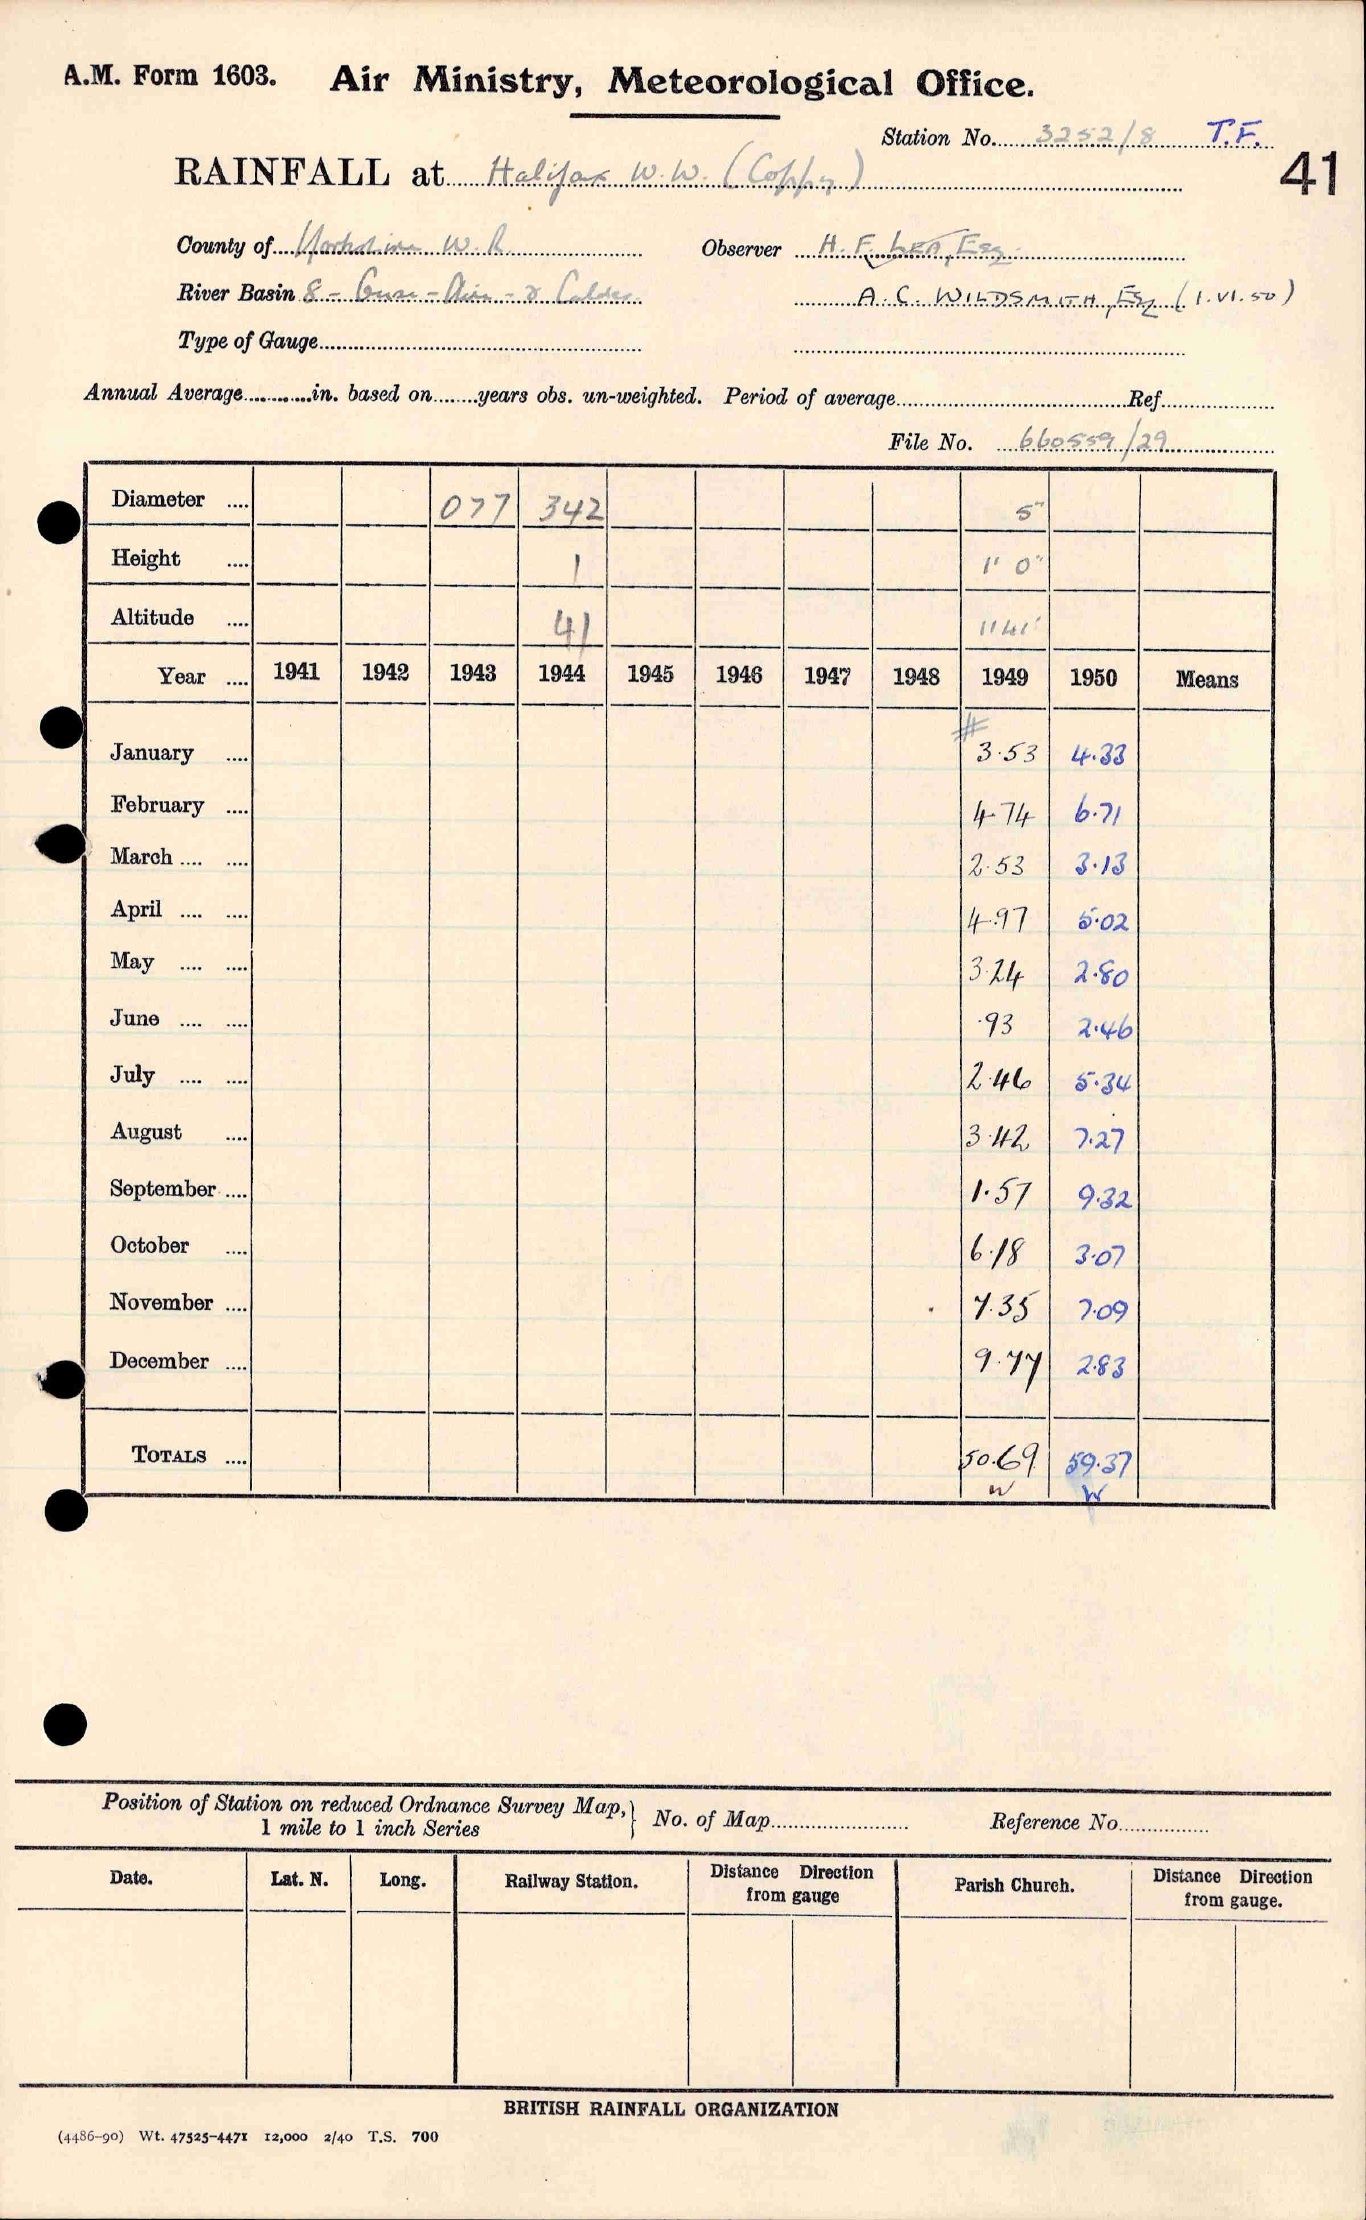 A.M. Form 1603. Air Ministry, Meteorological Office.
Station No. 3252/8 T.F.
RAINFALL at Halifax W.W. (Coppy) 41
County of Yorkshire W.R. Observer H. F. LEA, Esq.
River Basin 8 - Ouse - Aire - & Calder A. C. WILDSMITH, Esq (1.VI.50)
Type of Gauge
Annual Average in. based on years obs. un-weighted. Period of average Ref.
File No. 660559/29
Diameter .... 077 342 5"
Height .... 1 1' 0"
Altitude .... 41 1141'
Year .... 1941 1942 1943 1944 1945 1946 1947 1948 1949 1950 Means
#
January .... 3.53 4.33
February .... 4.74 6.71
March .... .... 2.53 3.13
April .... .... 4.97 5.02
May .... .... 3.24 2.80
June .... .... .93 2.46
July .... .... 2.46 5.34
August .... 3.42 7.27
September .... 1.57 9.32
October .... 6.18 3.07
November .... 7.35 7.09
December .... 9.77 2.83
TOTALS .... 50.69 59.37
W W
Position of Station on reduced Ordnance Survey Map,} No. of Map Reference No.
1 mile to 1 inch Series
Date. Lat. N. Long. Railway Station. Distance Direction Parish Church. Distance Direction
from gauge from gauge.
BRITISH RAINFALL ORGANIZATION
(4486-90) Wt. 47525-4471 12,000 2/40 T.S. 700